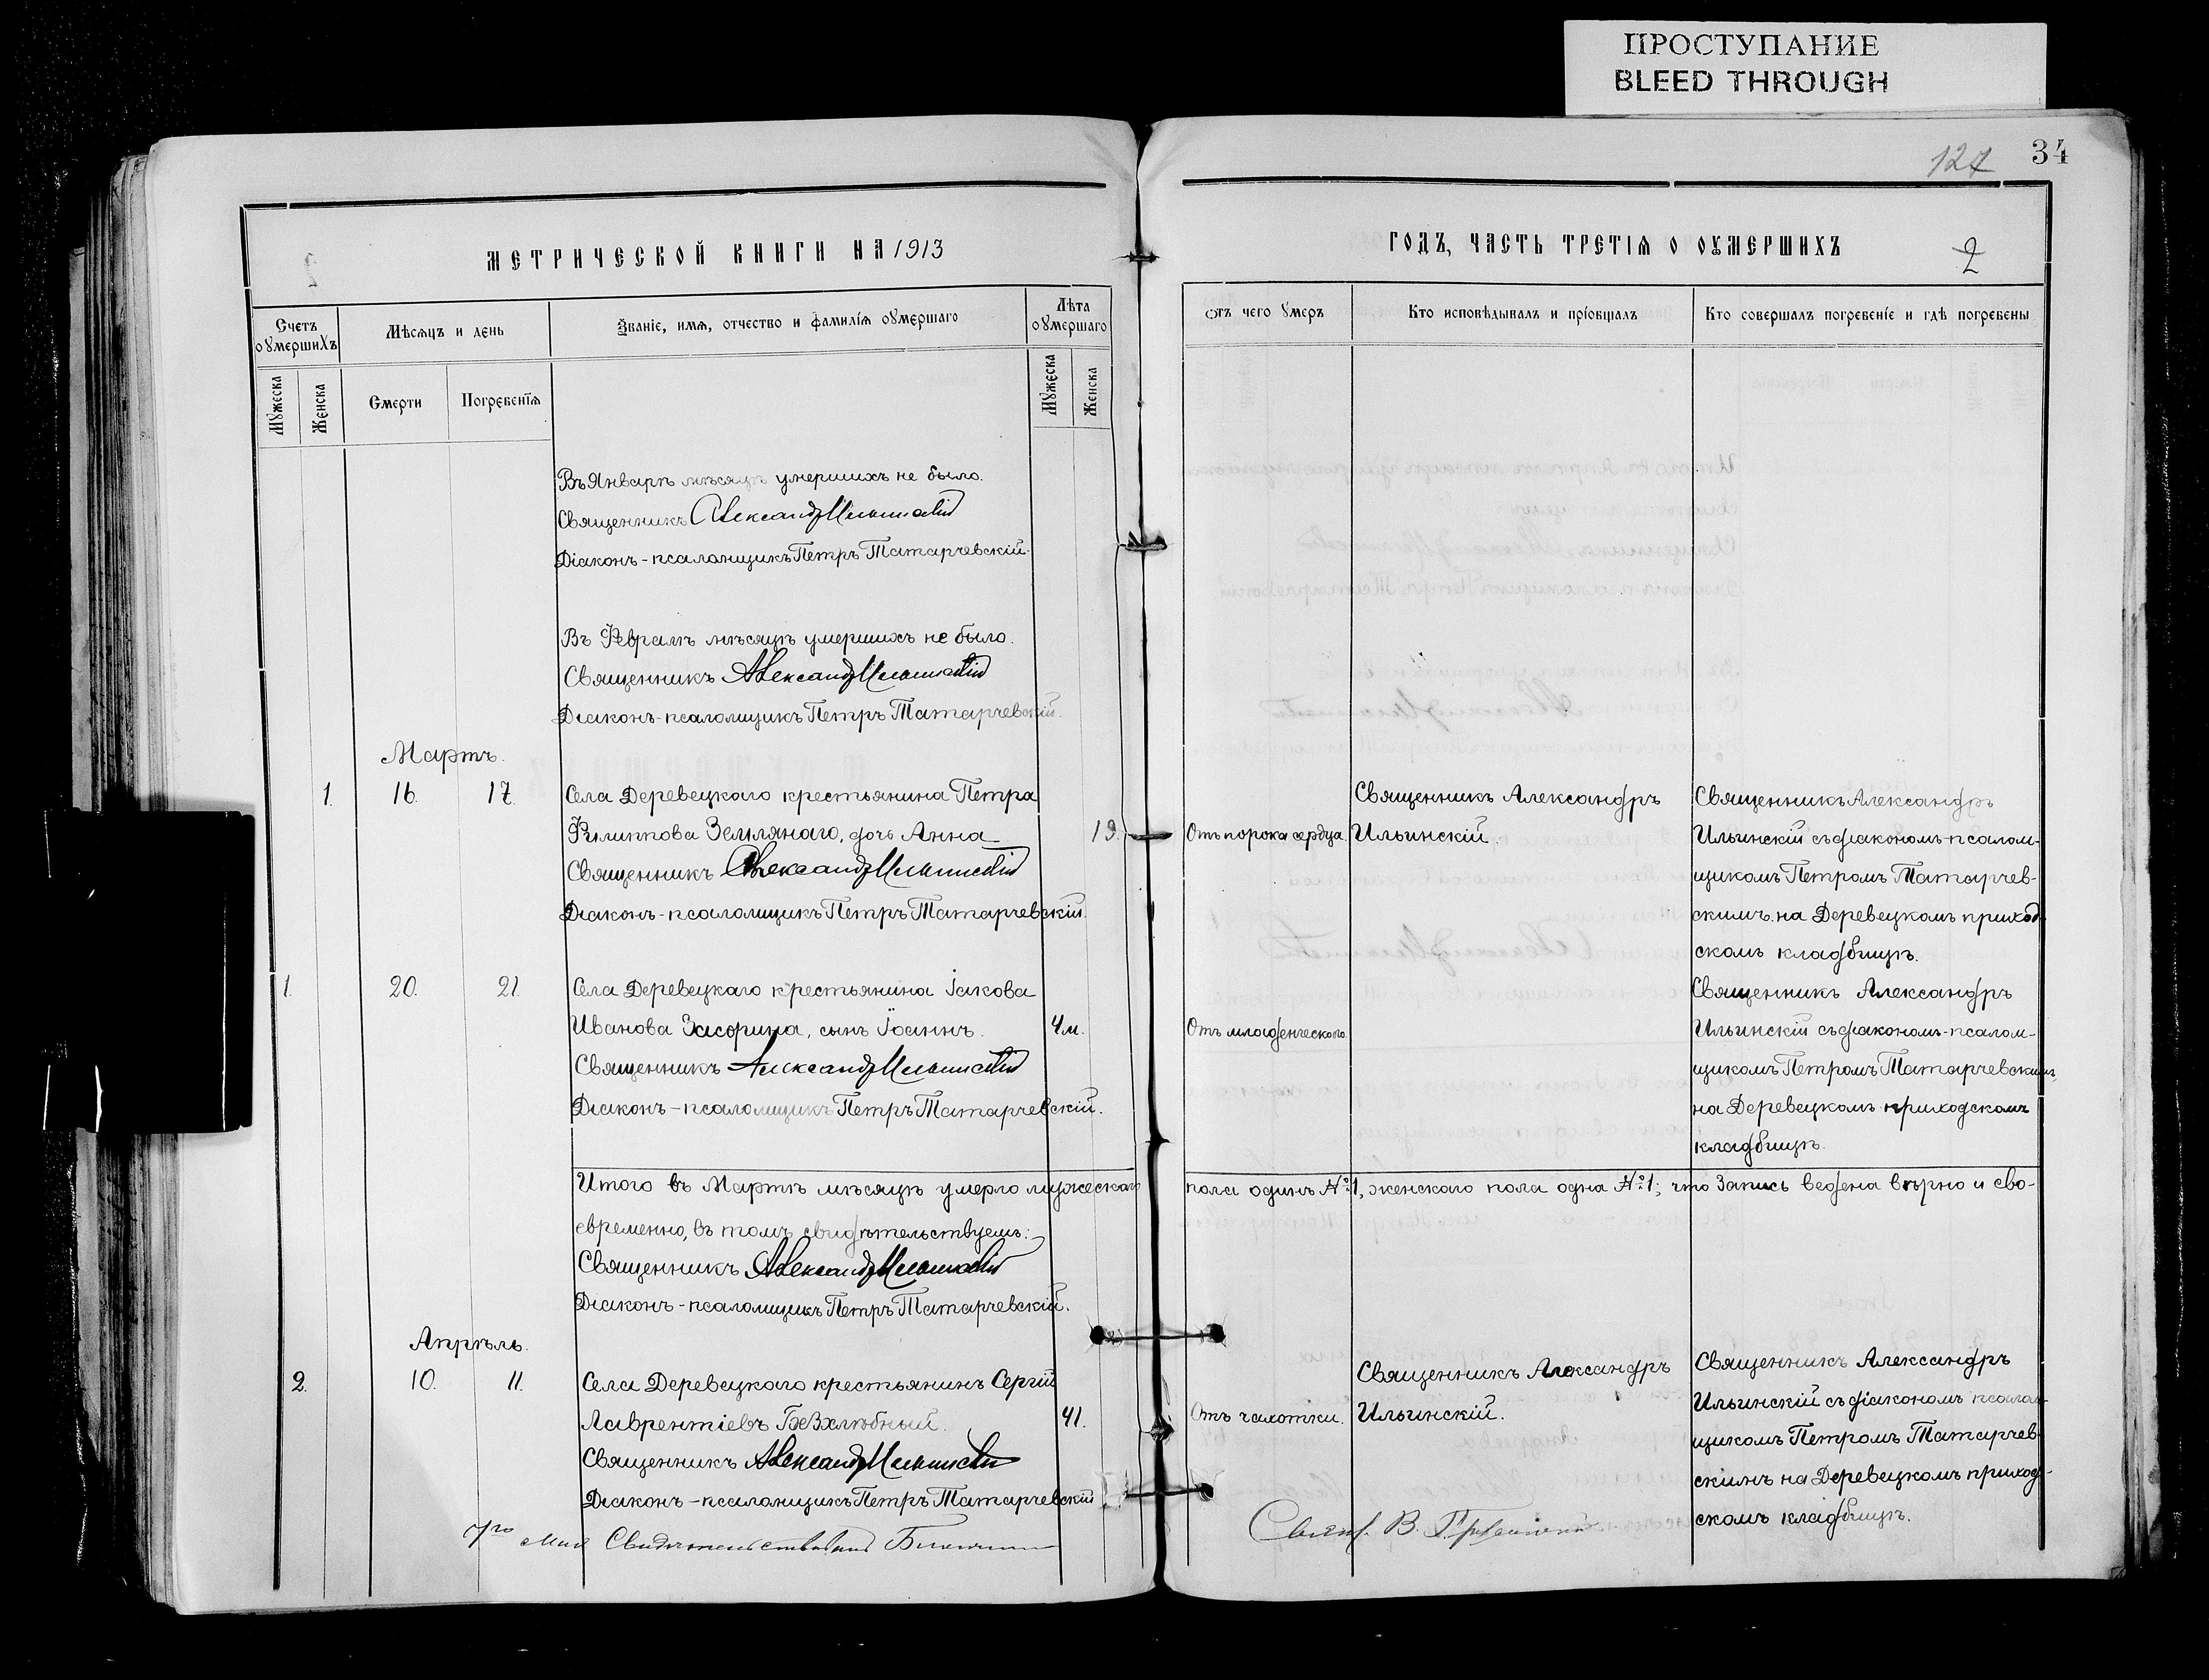 ПРОСТУПАНИЕ
BLEED THROUGH
34
127
МЕТРИЧЕСКОЙ КНИГИ НА 1913
ГОДЪ, ЧАСТЬ ТРЕТІѦ О ОУМЕРШИХЪ
2
Счетъ оумершихъ
Мѣсѧцъ и день
Званіе, имѧ, отчество и фамиліѧ оумершаго
Лѣта оумершаго
Отъ чего умеръ
Кто исповѣдывалъ и пріобщалъ
Кто совершалъ погребеніе и гдѣ погребены
Мужеска
Женска
Смерти
Погребеніѧ
Мужеска
Женска
Въ Январѣ мѣсяцѣ умершихъ не было.
Священникъ Александръ Ильинскій
Діаконъ-псаломщикъ Петръ Татарчевскій.
Въ Февралѣ мѣсяцѣ умершихъ не было.
Священникъ Александръ Ильинскій
Діаконъ-псаломщикъ Петръ Татарчевскій.
Мартъ.
1. 16. 17. Села Деревецкаго крестьянина Петра
Филиппова Землянаго, дочь Анна
19.
Священникъ Александръ Ильинскій
Діаконъ-псаломщикъ Петръ Татарчевскій.
Отъ порока сердца.
Священникъ Александръ
Ильинскій.
Священникъ Александръ
Ильинскій съ діакономъ-псалом-
щикомъ Петромъ Татарчев-
скимъ на Деревецкомъ приход-
скомъ кладбищѣ.
1. 20. 21. Села Деревецкаго крестьянина Іакова
Иванова сынъ Іоаннъ.
4 м.
Священникъ Александръ Ильинскій
Діаконъ-псаломщикъ Петръ Татарчевскій.
Отъ младенческаго.
Священникъ Александръ
Ильинскій съ діакономъ-псалом-
щикомъ Петромъ Татарчевскимъ,
на Деревецкомъ приходскомъ
кладбищѣ.
Итого въ Мартѣ мѣсяцѣ умерло мужескаго пола одинъ №1, женскаго пола одна №1; что запись ведена вѣрно и сво-
евременно, въ томъ свидѣтельствуемъ:
Священникъ Александръ Ильинскій
Діаконъ-псаломщикъ Петръ Татарчевскій.
Апрѣль.
2. 10. 11. Села Деревецкаго крестьянинъ Сергій
Лаврентіевъ Безхлѣбный.
41.
Священникъ Александръ Ильинскій
Діаконъ-псаломщикъ Петръ Татарчевскій
Отъ чахотки.
Священникъ Александръ
Ильинскій.
Священникъ Александръ
Ильинскій съ діакономъ псалом-
щикомъ Петромъ Татарчев-
скимъ на Деревецкомъ приход-
скомъ кладбищѣ.
7го мая Свидѣтельствовалъ
Свящ. В.